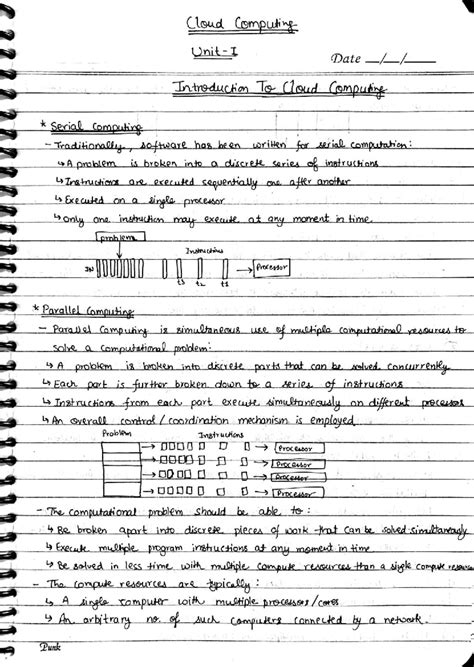 Cloud Computing
Unit-I
Date __/__/__
Introduction To Cloud Computing
* Serial Computing
- Traditionally, software has been written for serial computation:
↳ A problem is broken into a discrete series of instructions
↳ Instructions are executed sequentially one after another
↳ Executed on a single processor
↳ Only one instruction may execute at any moment in time.
problem
Instructions
IN
Processor
t3 t2 t1
* Parallel Computing
- Parallel Computing is simultaneous use of multiple computational resources to
solve a computational problem:
↳ A problem is broken into discrete parts that can be solved concurrently
↳ Each part is further broken down to a series of instructions
↳ Instructions from each part execute simultaneously on different processors
↳ An overall control / coordination mechanism is employed.
Problem Instructions
Processor
Processor
Processor
Processor
- The computational problem should be able to :
↳ Be broken apart into discrete pieces of work that can be solved simultaneously
↳ Execute multiple program instructions at any moment in time
↳ Be solved in less time with multiple compute resources than a single compute resource
- The compute resources are typically :
↳ A single computer with multiple processors/cores
↳ An arbitrary no. of such computers connected by a network.